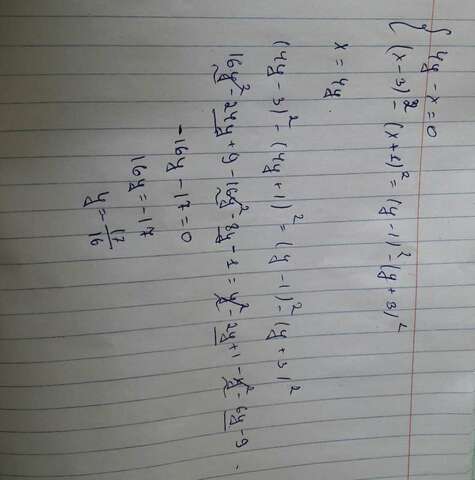 4y - x = 0
(x-3)² - (x+1)² = (y-1)² - (y+3)²
x = 4y.
(4y-3)² - (4y+1)² = (y-1)² - (y+3)²
16y² - 24y + 9 - 16y² - 8y - 1 = y² - 2y + 1 - y² - 6y - 9.
-16y - 17 = 0
16y = -17
y = 17/16